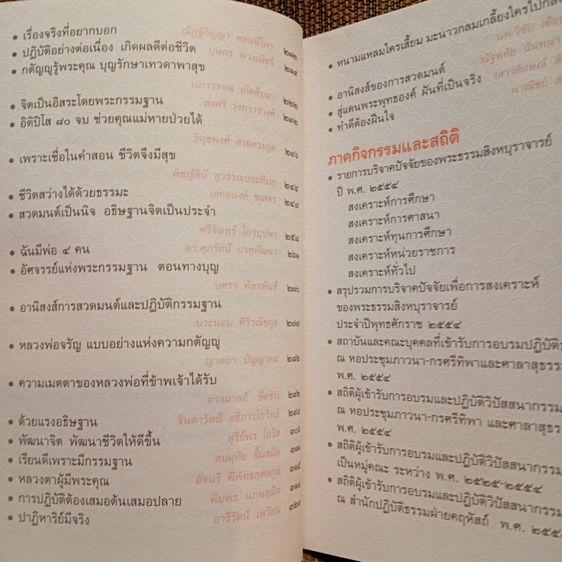 • เรื่องจริงที่อยากบอก
ณัฏฐ์กัญญา
๒๑๒
• ปฏิบัติอย่างต่อเนื่อง เกิดผลดีต่อชีวิต
บุษกร พวงเพ็ชร์
๒๑๕
• กตัญญูรู้พระคุณ บุญรักษาเทวดาพาสุข
๒๒๒
• จิตเป็นอิสระโดยพระกรรมฐาน
๒๓๒
• อิติปิโส ๘๐ จบ ช่วยคุณแม่หายป่วยได้
๒๓๖
• เพราะเชื่อในคำสอน ชีวิตจึงมีสุข
๒๔๔
• ชีวิตสว่างได้ด้วยธรรมะ
๒๔๘
• สวดมนต์เป็นนิจ อธิษฐานจิตเป็นประจำ
ศรีจันทร์
๒๕๘
• ฉันมีพ่อ ๔ คน
ดร.ศุภารัตน์
• อัศจรรย์แห่งพระกรรมฐาน ตอนทางบุญ
บุศรา พัชรพันธ์
๒๗๐
• อานิสงส์การสวดมนต์และปฏิบัติกรรมฐาน
ประนอม ศิริวณิชกุล
๒๗๘
• หลวงพ่อจรัญ แบบอย่างแห่งความกตัญญู
ญาดยา ปัญญาดม
๒๘๒
• ความเมตตาของหลวงพ่อที่ข้าพเจ้าได้รับ
ดวงมาลย์
• ด้วยแรงอธิษฐาน
จินดารัตน์
• พัฒนาจิต พัฒนาชีวิตให้ดีขึ้น
สุรีย์พร
• เรียนดีเพราะมีกรรมฐาน
สมฤทัย
• หลวงตาผู้มีพระคุณ
อัจฉรี พิพัทธกุศลกุล
• การปฏิบัติต้องเสมอต้นเสมอปลาย
พิมพร
• ปาฏิหาริย์มีจริง
อารีรัตน์ เหวียน
๓๒๐
• หนามแหลมใครเสี้ยม มะนาวกลมเกลี้ยงใครไปกลึง
• อานิสงส์ของการสวดมนต์
• สู่แดนพระพุทธองค์ ฝันที่เป็นจริง
• ทำดีต้องฝืนใจ
ภาคกิจกรรมและสถิติ
• รายการบริจาคปัจจัยของพระธรรมสิงหบุราจารย์
ปี พ.ศ. ๒๕๕๔
สงเคราะห์การศึกษา
สงเคราะห์การศาสนา
สงเคราะห์ทุนการศึกษา
สงเคราะห์หน่วยราชการ
สงเคราะห์ทั่วไป
• สรุปรวมการบริจาคปัจจัยเพื่อการสงเคราะห์
ของพระธรรมสิงหบุราจารย์
ประจำปีพุทธศักราช ๒๕๕๔
• สถาบันและคณะบุคคลที่เข้ารับการอบรมปฏิบัติ
ณ หอประชุมภาวนา-กรศรีทิพาและศาลาสุธรร
พ.ศ. ๒๕๕๔
• สถิติผู้เข้ารับการอบรมและปฏิบัติวิปัสสนากรรม
ณ หอประชุมภาวนา-กรศรีทิพา และศาลาสุธร
พ.ศ. ๒๕๕๔
• สถิติผู้เข้ารับการอบรมและปฏิบัติวิปัสสนากรรม
เป็นหมู่คณะ ระหว่าง พ.ศ. ๒๕๒๕-๒๕๕๔
• สถิติผู้เข้ารับการอบรมและปฏิบัติวิปัสสนากรรม
ณ สำนักปฏิบัติธรรมฝ่ายคฤหัสถ์ พ.ศ. ๒๕๕